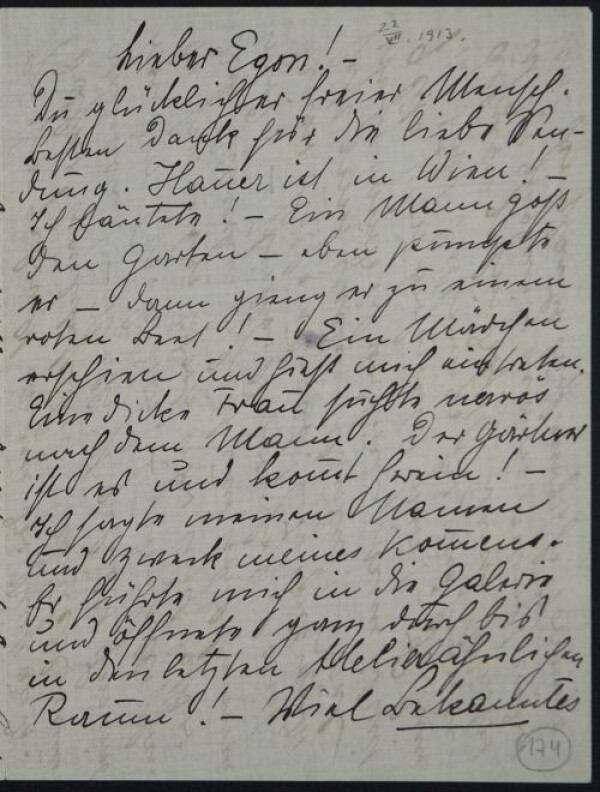 22
VII. 1913.
Lieber Egon! –
Du glücklichster freier Mensch.
Besten Dank für die liebe Sen-
dung. Hauer ist in Wien! –
Ich läutete! – Ein Mann goß
den Garten – eben pumpte
er – dann gieng er zu einem
roten Beet! – Ein Mädchen
erschien und hieß mich eintreten.
Eine dicke Frau suchte nervös
nach dem Mann. Der Gärtner
ist es und kom̄t herein! –
Ich sagte meinen Namen
und Zweck meines Kom̄ens.
Er führte mich in die Galerie
und öffnete ganz durch bis
in den letzten Atelierähnlichen
Raum! – Viel Bekanntes
174